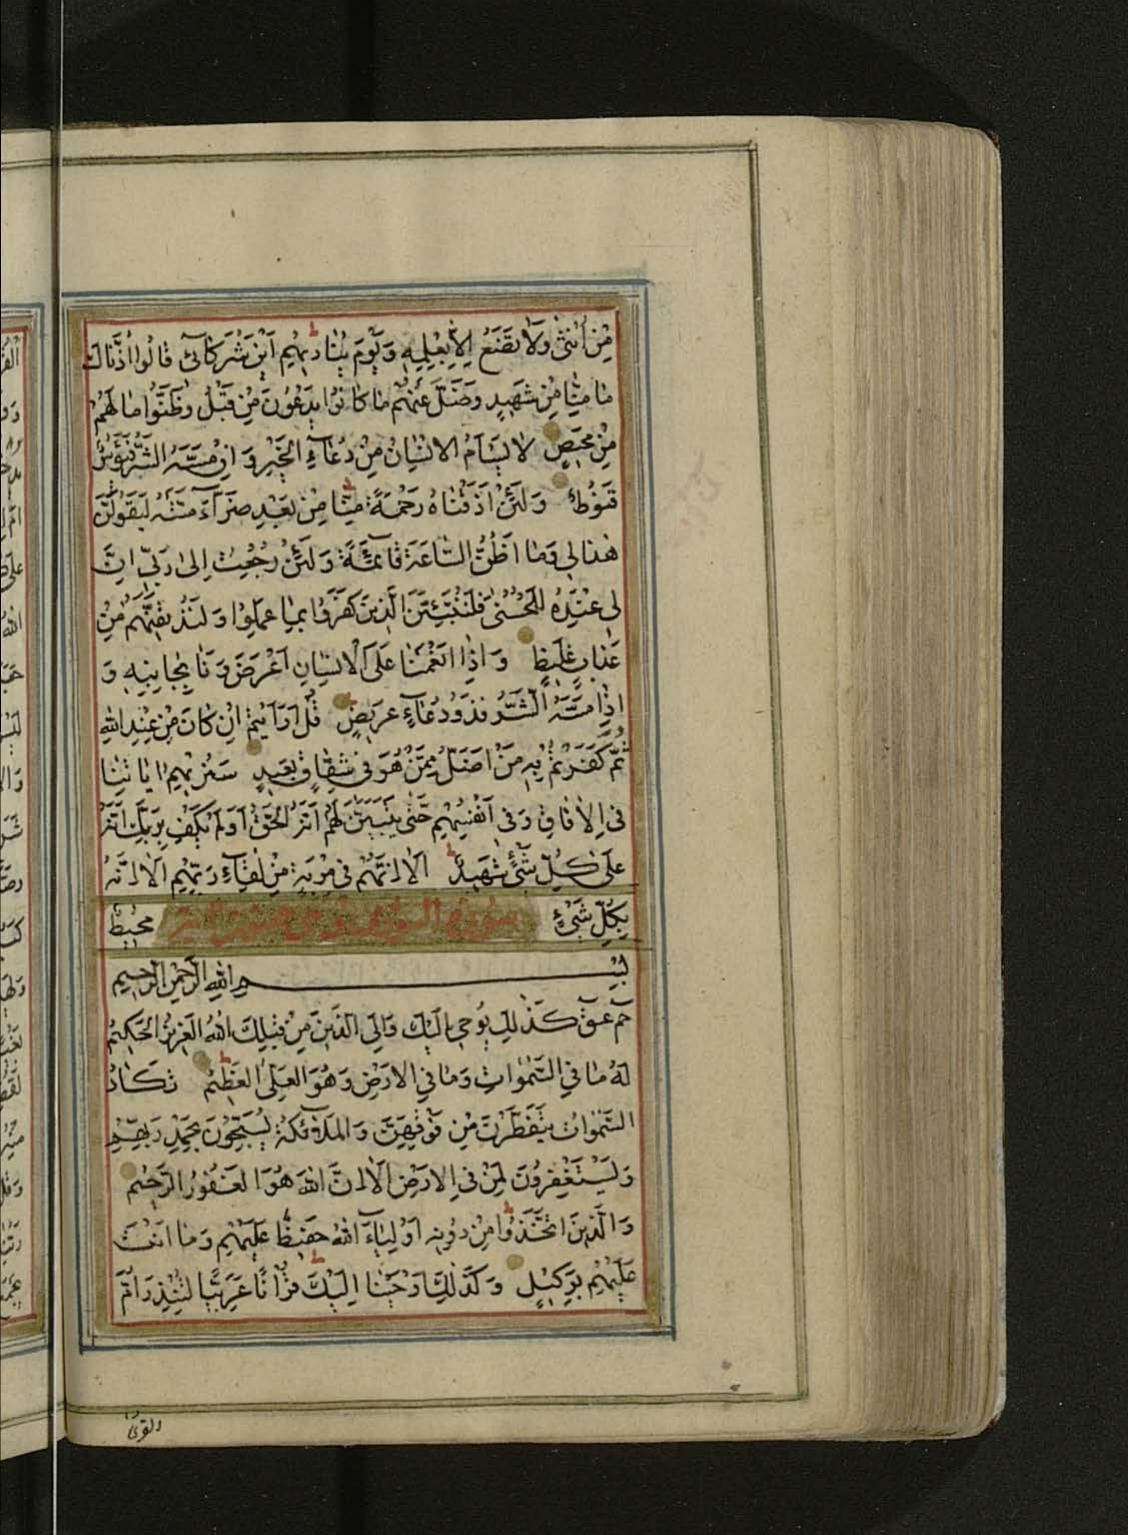 مِنْ أُنْثَىٰ وَلَا تَضَعُ إِلَّا بِعِلْمِهِ وَيَوْمَ يُنَادِيهِمْ أَيْنَ شُرَكَائِي قَالُوا آذَنَّاكَ
مَا مِنَّا مِنْ شَهِيدٍ وَضَلَّ عَنْهُمْ مَا كَانُوا يَدْعُونَ مِنْ قَبْلُ وَظَنُّوا مَا لَهُمْ
مِنْ مَحِيصٍ لَا يَسْأَمُ الْإِنْسَانُ مِنْ دُعَاءِ الْخَيْرِ وَإِنْ مَسَّهُ الشَّرُّ فَيَؤُسٌ
قَنُوطٌ وَلَئِنْ أَذَقْنَاهُ رَحْمَةً مِنَّا مِنْ بَعْدِ ضَرَّاءَ مَسَّتْهُ لَيَقُولَنَّ
هَٰذَا لِي وَمَا أَظُنُّ السَّاعَةَ قَائِمَةً وَلَئِنْ رُجِعْتُ إِلَىٰ رَبِّي إِنَّ
لِي عِنْدَهُ لَلْحُسْنَىٰ فَلَنُنَبِّئَنَّ الَّذِينَ كَفَرُوا بِمَا عَمِلُوا وَلَنُذِيقَنَّهُمْ مِنْ
عَذَابٍ غَلِيظٍ وَإِذَا أَنْعَمْنَا عَلَى الْإِنْسَانِ أَعْرَضَ وَنَا بِجَانِبِهِ وَ
إِذَا مَسَّهُ الشَّرُّ فَذُو دُعَاءٍ عَرِيضٍ قُلْ أَرَأَيْتُمْ إِنْ كَانَ مِنْ عِنْدِ اللَّهِ
ثُمَّ كَفَرْتُمْ بِهِ مَنْ أَضَلُّ مِمَّنْ هُوَ فِي شِقَاقٍ بَعِيدٍ سَنُرِيهِمْ آيَاتِنَا
فِي الْآفَاقِ وَفِي أَنْفُسِهِمْ حَتَّىٰ يَتَبَيَّنَ لَهُمْ أَنَّهُ الْحَقُّ أَوَلَمْ يَكْفِ بِرَبِّكَ أَنَّهُ
عَلَىٰ كُلِّ شَيْءٍ شَهِيدٌ أَلَا إِنَّهُمْ فِي مِرْيَةٍ مِنْ لِقَاءِ رَبِّهِمْ أَلَا إِنَّهُ
بِكُلِّ شَيْءٍ سورة الشورى مُحِيطٌ
بِسْمِ اللَّهِ الرَّحْمَٰنِ الرَّحِيمِ
حم عسق كَذَٰلِكَ يُوحِي إِلَيْكَ وَإِلَى الَّذِينَ مِنْ قَبْلِكَ اللَّهُ الْعَزِيزُ الْحَكِيمُ
لَهُ مَا فِي السَّمَوَاتِ وَمَا فِي الْأَرْضِ وَهُوَ الْعَلِيُّ الْعَظِيمُ تَكَادُ
السَّمَوَاتُ يَتَفَطَّرْنَ مِنْ فَوْقِهِنَّ وَالْمَلَائِكَةُ يُسَبِّحُونَ بِحَمْدِ رَبِّهِمْ
وَيَسْتَغْفِرُونَ لِمَنْ فِي الْأَرْضِ أَلَا إِنَّ اللَّهَ هُوَ الْغَفُورُ الرَّحِيمُ
وَالَّذِينَ اتَّخَذُوا مِنْ دُونِهِ أَوْلِيَاءَ اللَّهُ حَفِيظٌ عَلَيْهِمْ وَمَا أَنْتَ
عَلَيْهِمْ بِوَكِيلٍ وَكَذَٰلِكَ أَوْحَيْنَا إِلَيْكَ قُرْآنًا عَرَبِيًّا لِتُنْذِرَ أُمَّ
القرى